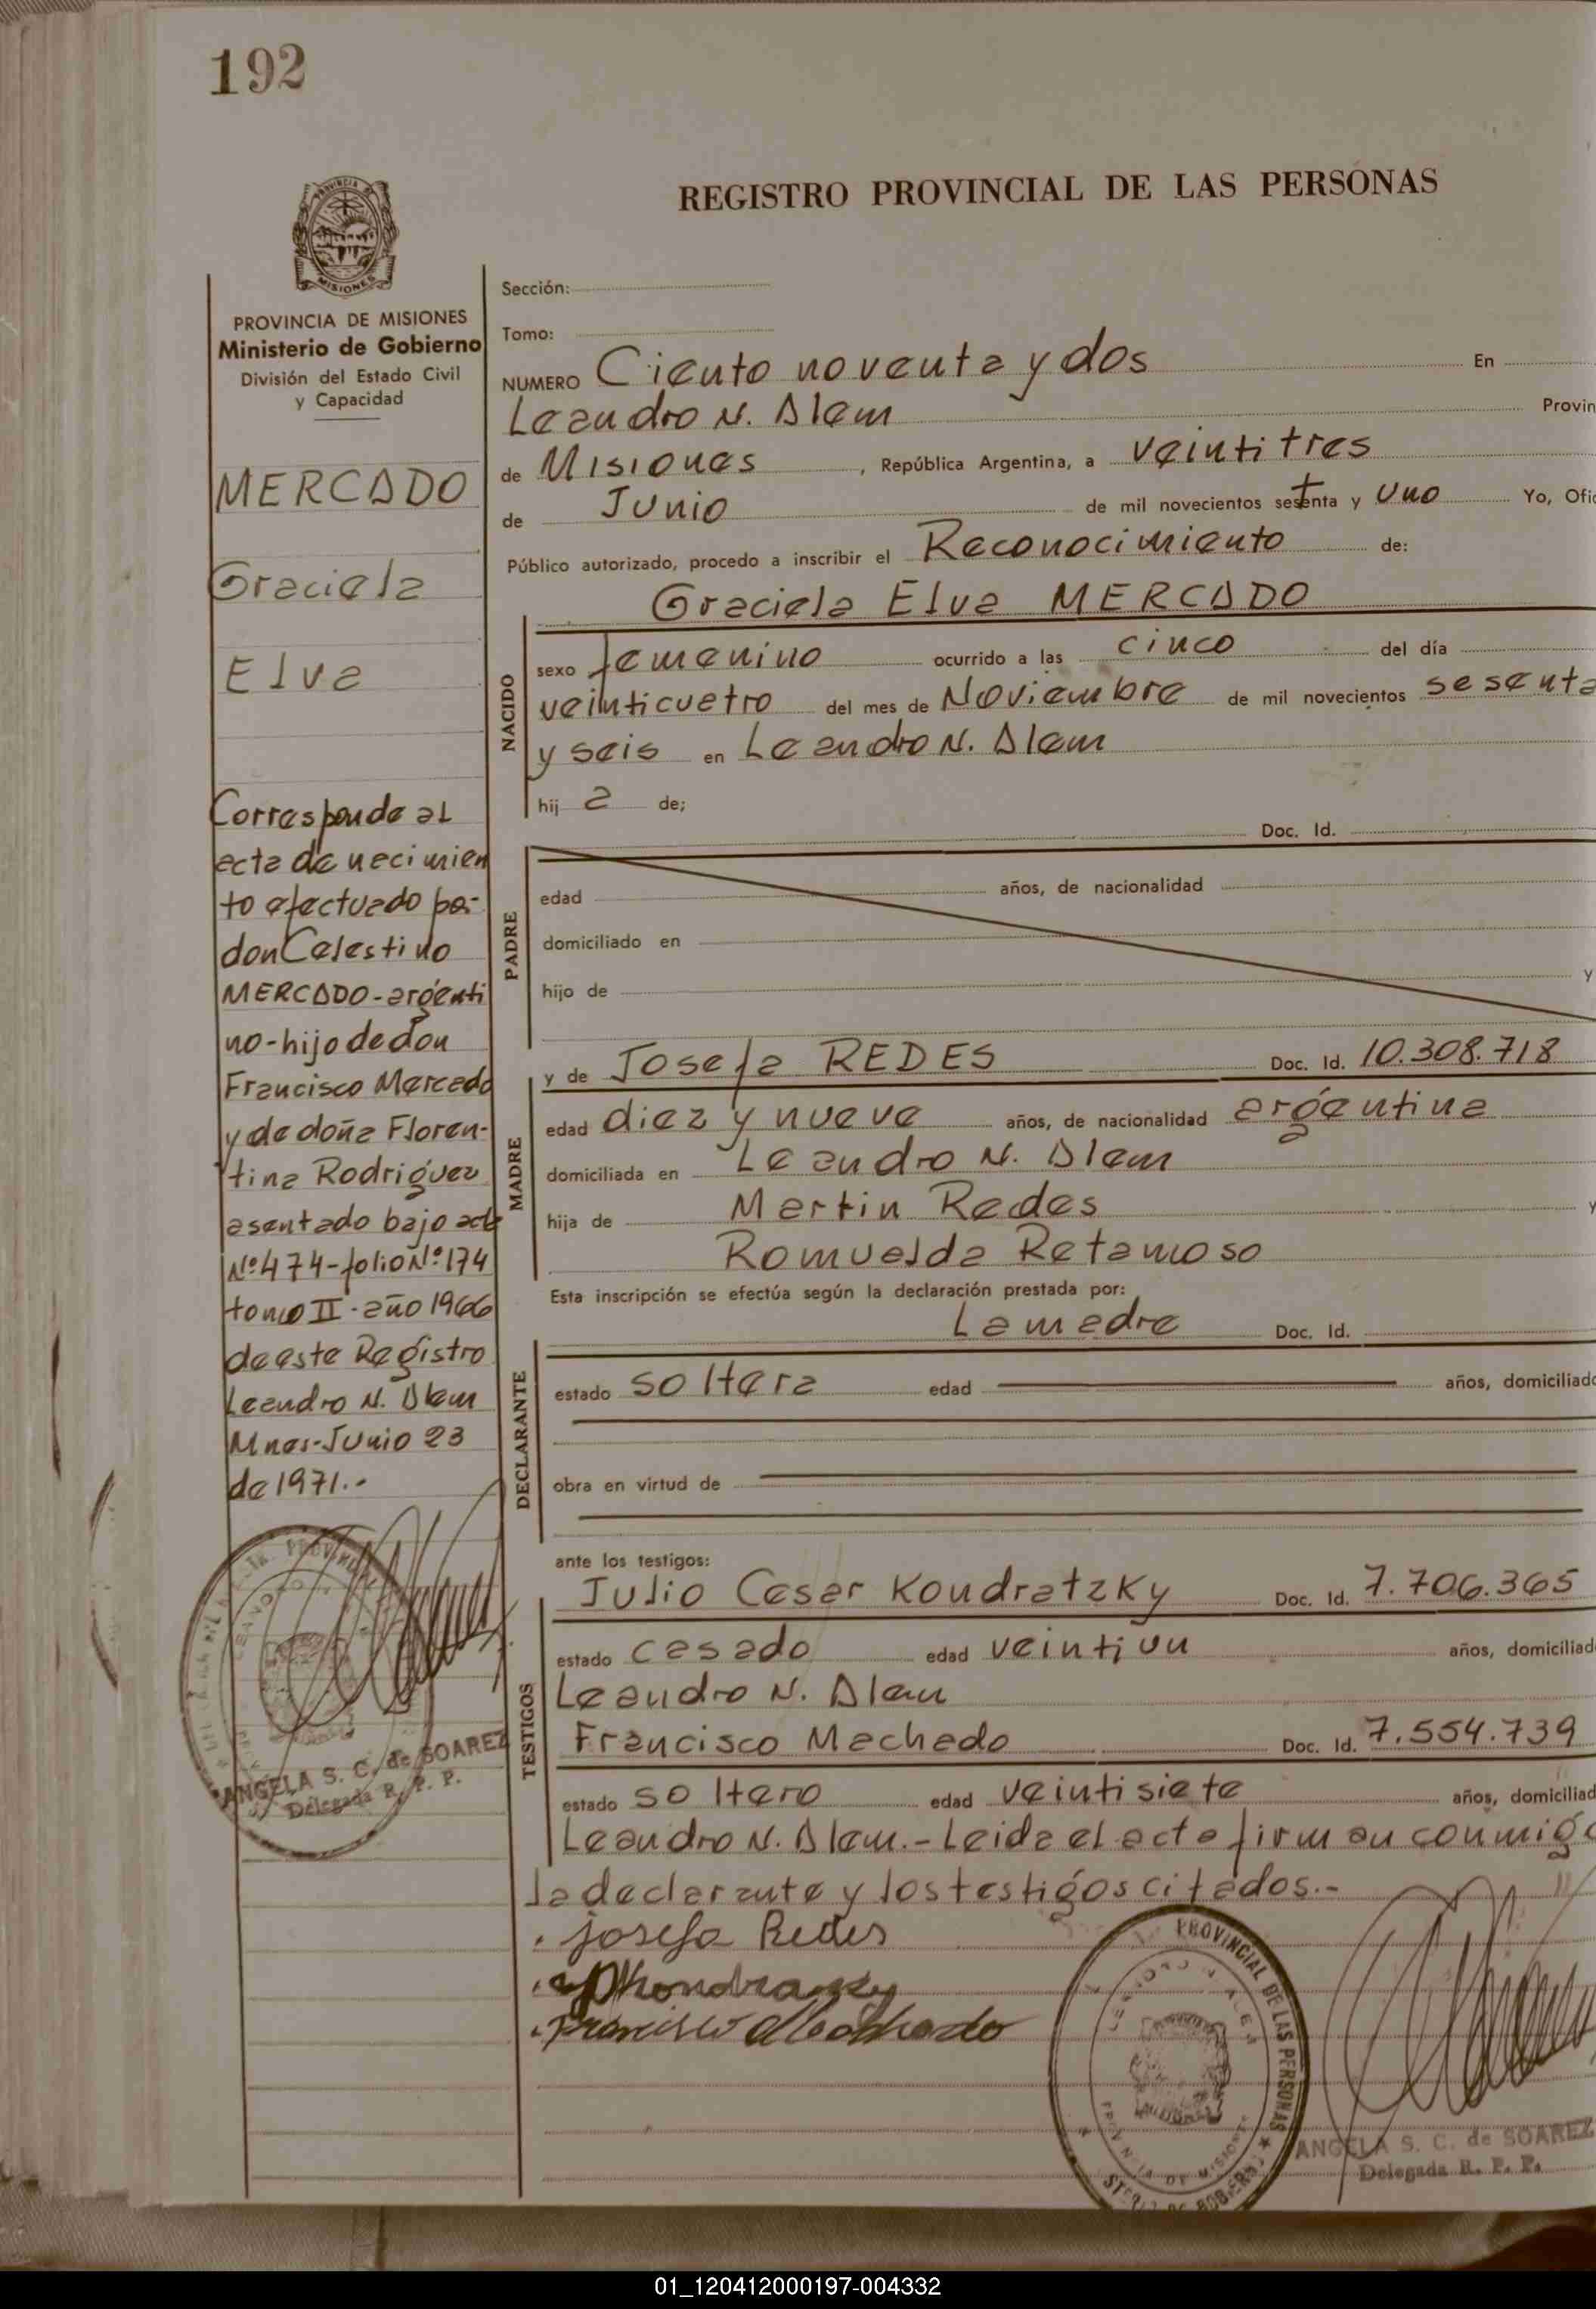 192
REGISTRO PROVINCIAL DE LAS PERSONAS
MISIONES
PROVINCIA DE MISIONES
Ministerio de Gobierno
División del Estado Civil
y Capacidad
MERCADO
Graciela
Elva
Corresponde al
acta de nacimien
to efectuado por
don Celestino
MERCADO-argenti
no-hijo de don
Francisco Mercado
y de doña Floren-
tina Rodriguez
asentado bajo acta
Nº 474-folio Nº 174
tomo II-año 1966
de este Registro
Leandro N. Alem
Mnes-Junio 23
de 1971.-
ANGELA S. C. de SOAREZ
Delegada R. P. P.
Sección:
Tomo:
NUMERO Ciento noventa y dos En
Leandro N. Alem Provin
de Misiones, República Argentina, a veintitres
de Junio de mil novecientos setenta y uno Yo, Ofic
Público autorizado, procedo a inscribir el Reconocimiento de:
Graciela Elva MERCADO
NACIDO
sexo femenino ocurrido a las cinco del día
veinticuatro del mes de Noviembre de mil novecientos sesenta
y seis en Leandro N. Alem
hij a de;
Doc. Id.
PADRE
edad años, de nacionalidad
domiciliado en
hijo de y
y de Josefa REDES Doc. Id. 10.308.718
MADRE
edad diez y nueve años, de nacionalidad argentina
domiciliada en Leandro N. Alem
hija de Martin Redes y
Romualda Retamoso
Esta inscripción se efectúa según la declaración prestada por:
La madre Doc. Id.
DECLARANTE
estado soltera edad años, domiciliado
obra en virtud de
ante los testigos:
Julio Cesar Kondratzky Doc. Id. 7.706.365
TESTIGOS
estado casado edad veintiun años, domiciliad
Leandro N. Alem
Francisco Machado Doc. Id. 7.554.739
estado soltero edad veintisiete años, domiciliad
Leandro N. Alem.-Leida el acta firman conmigo
la declarante y los testigos citados.-
Josefa Redes
Francisco Machado
PROVINCIAL DE LAS PERSONAS
LEANDRO N. ALEM
PROVINCIA DE MISIONES
ANGELA S. C. de SOAREZ
Delegada R. P. P.
01_120412000197-004332